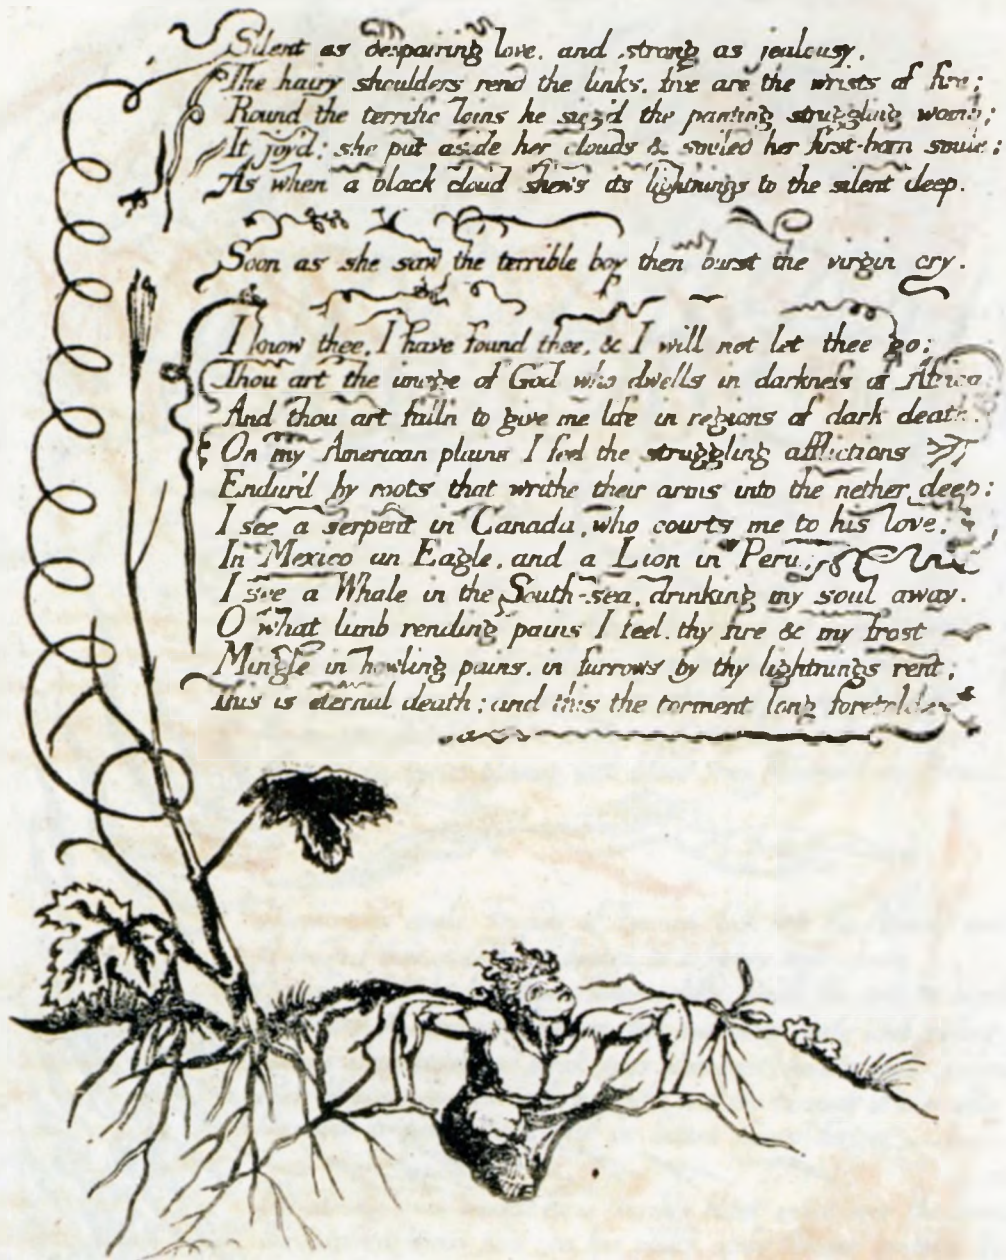 Silent as despairing love, and strong as jealousy,
The hairy shoulders rend the links, free are the wrists of fire;
Round the terrific loins he siez'd the panting struggling womb;
It joy'd: she put aside her clouds & smiled her first-born smile;
As when a black cloud shews its lightnings to the silent deep.
Soon as she saw the terrible boy then burst the virgin cry.
I know thee, I have found thee, & I will not let thee go;
Thou art the image of God who dwells in darkness of Africa
And thou art fall'n to give me life in regions of dark death.
On my American plains I feel the struggling afflictions
Endur'd by roots that writhe their arms into the nether deep:
I see a serpent in Canada, who courts me to his love;
In Mexico an Eagle, and a Lion in Peru;
I see a Whale in the South-sea, drinking my soul away.
O what limb rending pains I feel. thy fire & my frost
Mingle in howling pains, in furrows by thy lightnings rent;
This is eternal death; and this the torment long foretold.